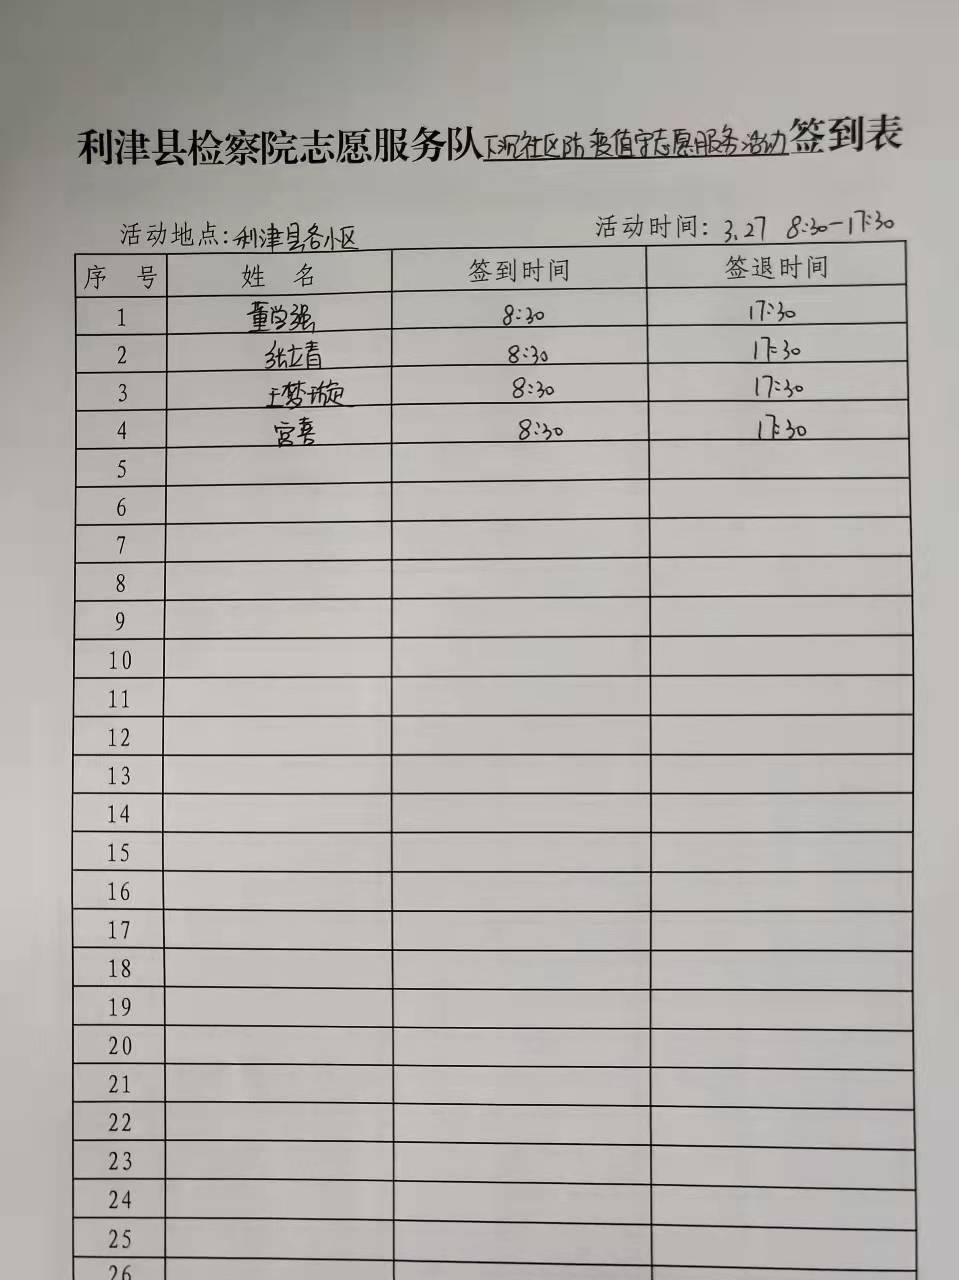 利津县检察院志愿服务队下沉社区防疫值守志愿服务活动签到表
活动地点:利津县各小区 活动时间: 3.27 8:30-17:30
序 号 姓 名 签到时间 签退时间
1 董学强 8:30 17:30
2 张立青 8:30 17:30
3 王梦璇 8:30 17:30
4 宫喜 8:30 17:30
5
6
7
8
9
10
11
12
13
14
15
16
17
18
19
20
21
22
23
24
25
26